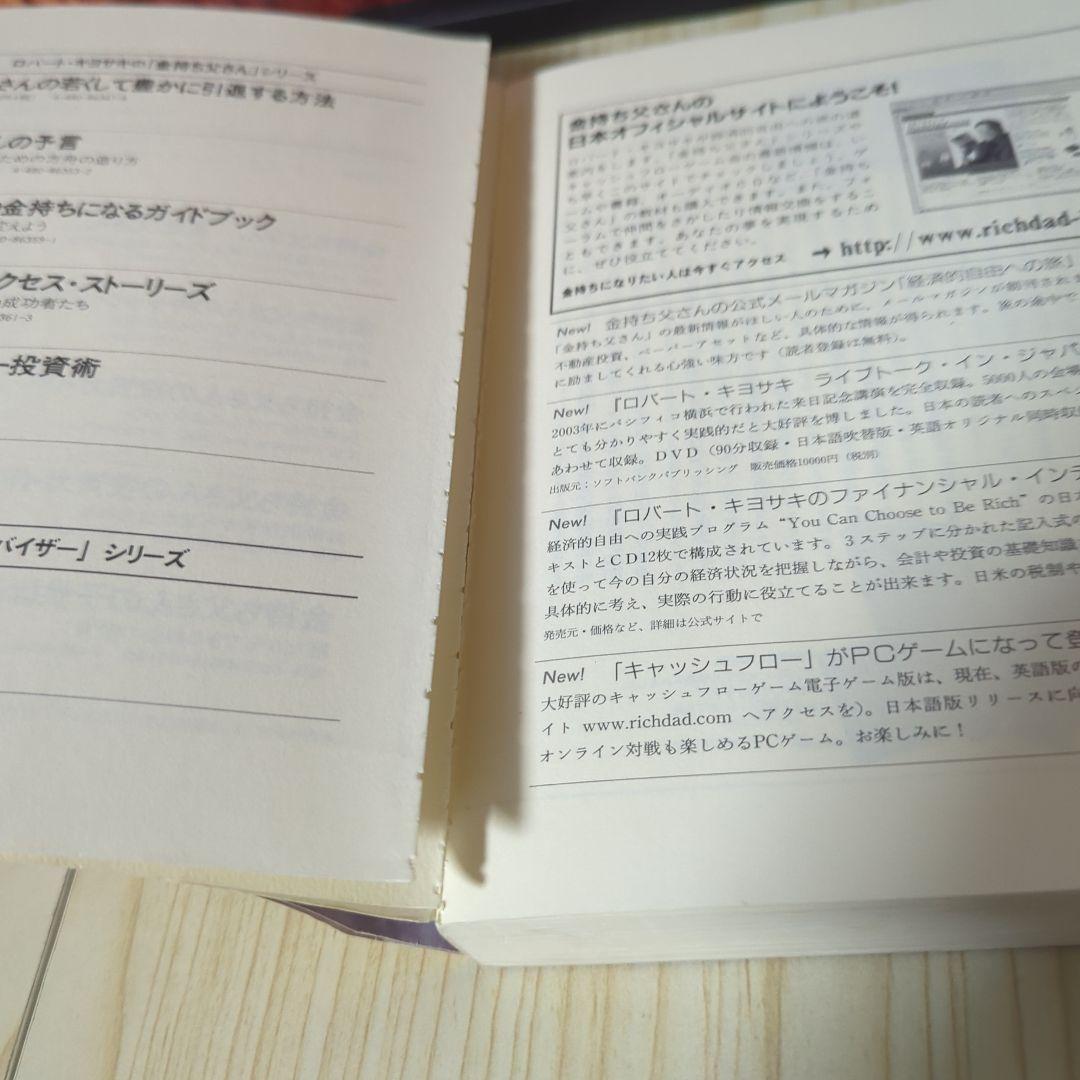 ロバート・キヨサキの「金持ち父さん」シリーズ
さんの若くして豊かに引退する方法
しの予言
ための方舟の造り方
4-480-86353-2
金持ちになるガイドブック
変えよう
0-86359-1
クセス・ストーリーズ
成功者たち
361-3
ー投資術
バイザー」シリーズ
金持ち父さんの
日本オフィシャルサイトにようこそ!
ロバート・キヨサキが経済的自由への旅の道
案内をします。「金持ち父さん」シリーズや
キャッシュフローゲーム会の最新情報は、い
ち早くこのサイトでチェックしましょう。ゲ
ームや書籍、オーディオCDなど、「金持ち
父さん」の教材も購入できます。また、フォ
ーラムで仲間をさがしたり情報交換をするこ
ともできます。あなたの夢を実現するため
に、ぜひ役立ててください。
金持ちになりたい人は今すぐアクセス → http://www.richdad-
New! 金持ち父さんの公式メールマガジン「経済的自由への旅」
「金持ち父さん」の最新情報がほしい人のために、メールマガジンが創刊されま
不動産投資、ペーパーアセットなど、具体的な情報が得られます。旅の途中で
に励ましてくれる心強い味方です（読者登録は無料）。
New! 「ロバート・キヨサキ ライブトーク・イン・ジャパ
2003年にパシフィコ横浜で行われた来日記念講演を完全収録。5000人の会場
とても分かりやすく実践的だと大好評を博しました。日本の読者へのスペ
あわせて収録。DVD（90分収録・日本語吹替版・英語オリジナル同時収
出版元：ソフトバンクパブリッシング 販売価格10000円（税別）
New! 「ロバート・キヨサキのファイナンシャル・インテ
経済的自由への実践プログラム“You Can Choose to Be Rich”の日本
キストとCD12枚で構成されています。3ステップに分かれた記入式の
を使って今の自分の経済状況を把握しながら、会計や投資の基礎知識
具体的に考え、実際の行動に役立てることが出来ます。日米の税制や
発売元・価格など、詳細は公式サイトで
New! 「キャッシュフロー」がPCゲームになって登
大好評のキャッシュフローゲーム電子ゲーム版は、現在、英語版の
イト www.richdad.com へアクセスを）。日本語版リリースに向
オンライン対戦も楽しめるPCゲーム。お楽しみに！